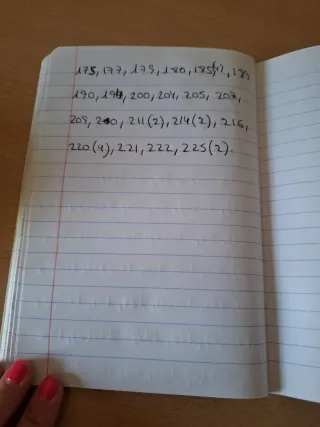 175, 177, 179, 180, 185(2), 189
190, 194, 200, 204, 205, 207,
209, 210, 211(2), 214(2), 216,
220(4), 221, 222, 225(2).